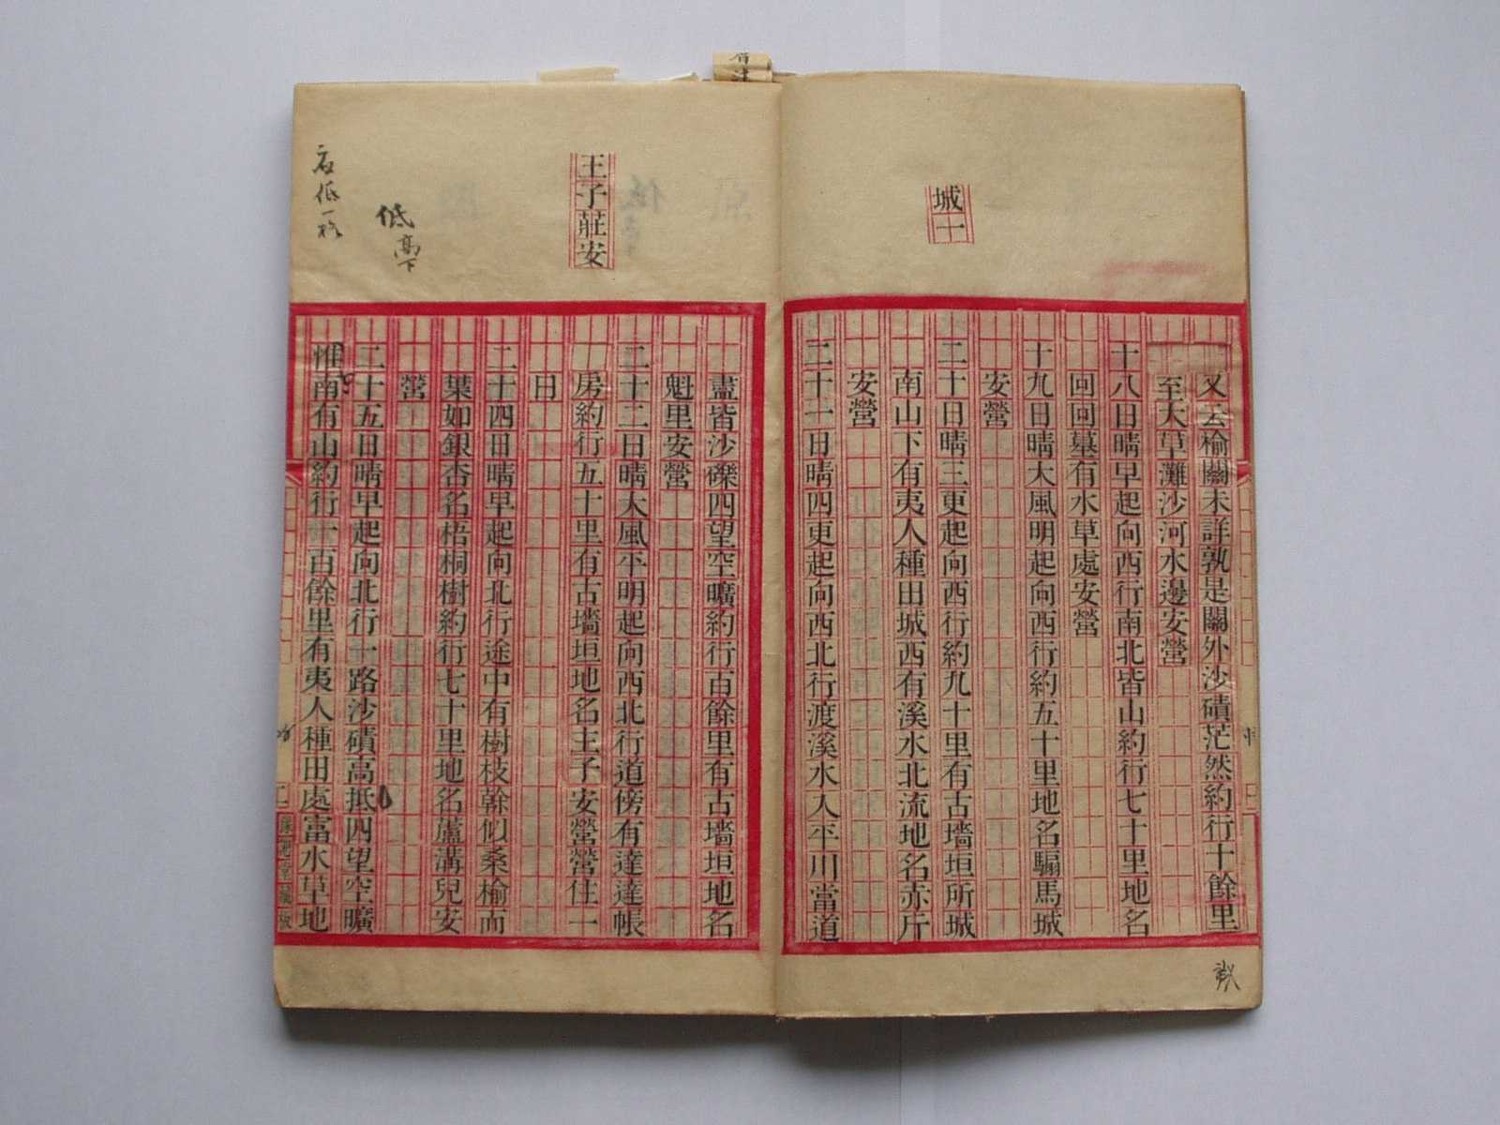 城一
又云榆關未詳孰是關外沙磧茫然約行十餘里
至大草灘沙河水邊安營
十八日晴早起向西行南北皆山約行七十里地名
回回墓有水草處安營
十九日晴大風明起向西行約五十里地名騸馬城
安營
二十日晴三更起向西行約九十里有古墻垣所城
南山下有夷人種田城西有溪水北流地名赤斤
安營
二十一日晴四更起向西北行渡溪水入平川當道
王子莊安
盡皆沙磧四望空曠約行百餘里有古墻垣地名
魁里安營
二十二日晴大風平明起向西北行道傍有達達帳
房約行五十里有古墻垣地名王子安營營住一
日
二十四日晴早起向北行途中有樹枝幹似桑榆而
葉如銀杏名梧桐樹約行七十里地名蘆溝兒安
營
二十五日晴早起向北行一路沙磧高低四望空曠
惟南有山約行一百餘里有夷人種田處富水草地
低
高下
低一格